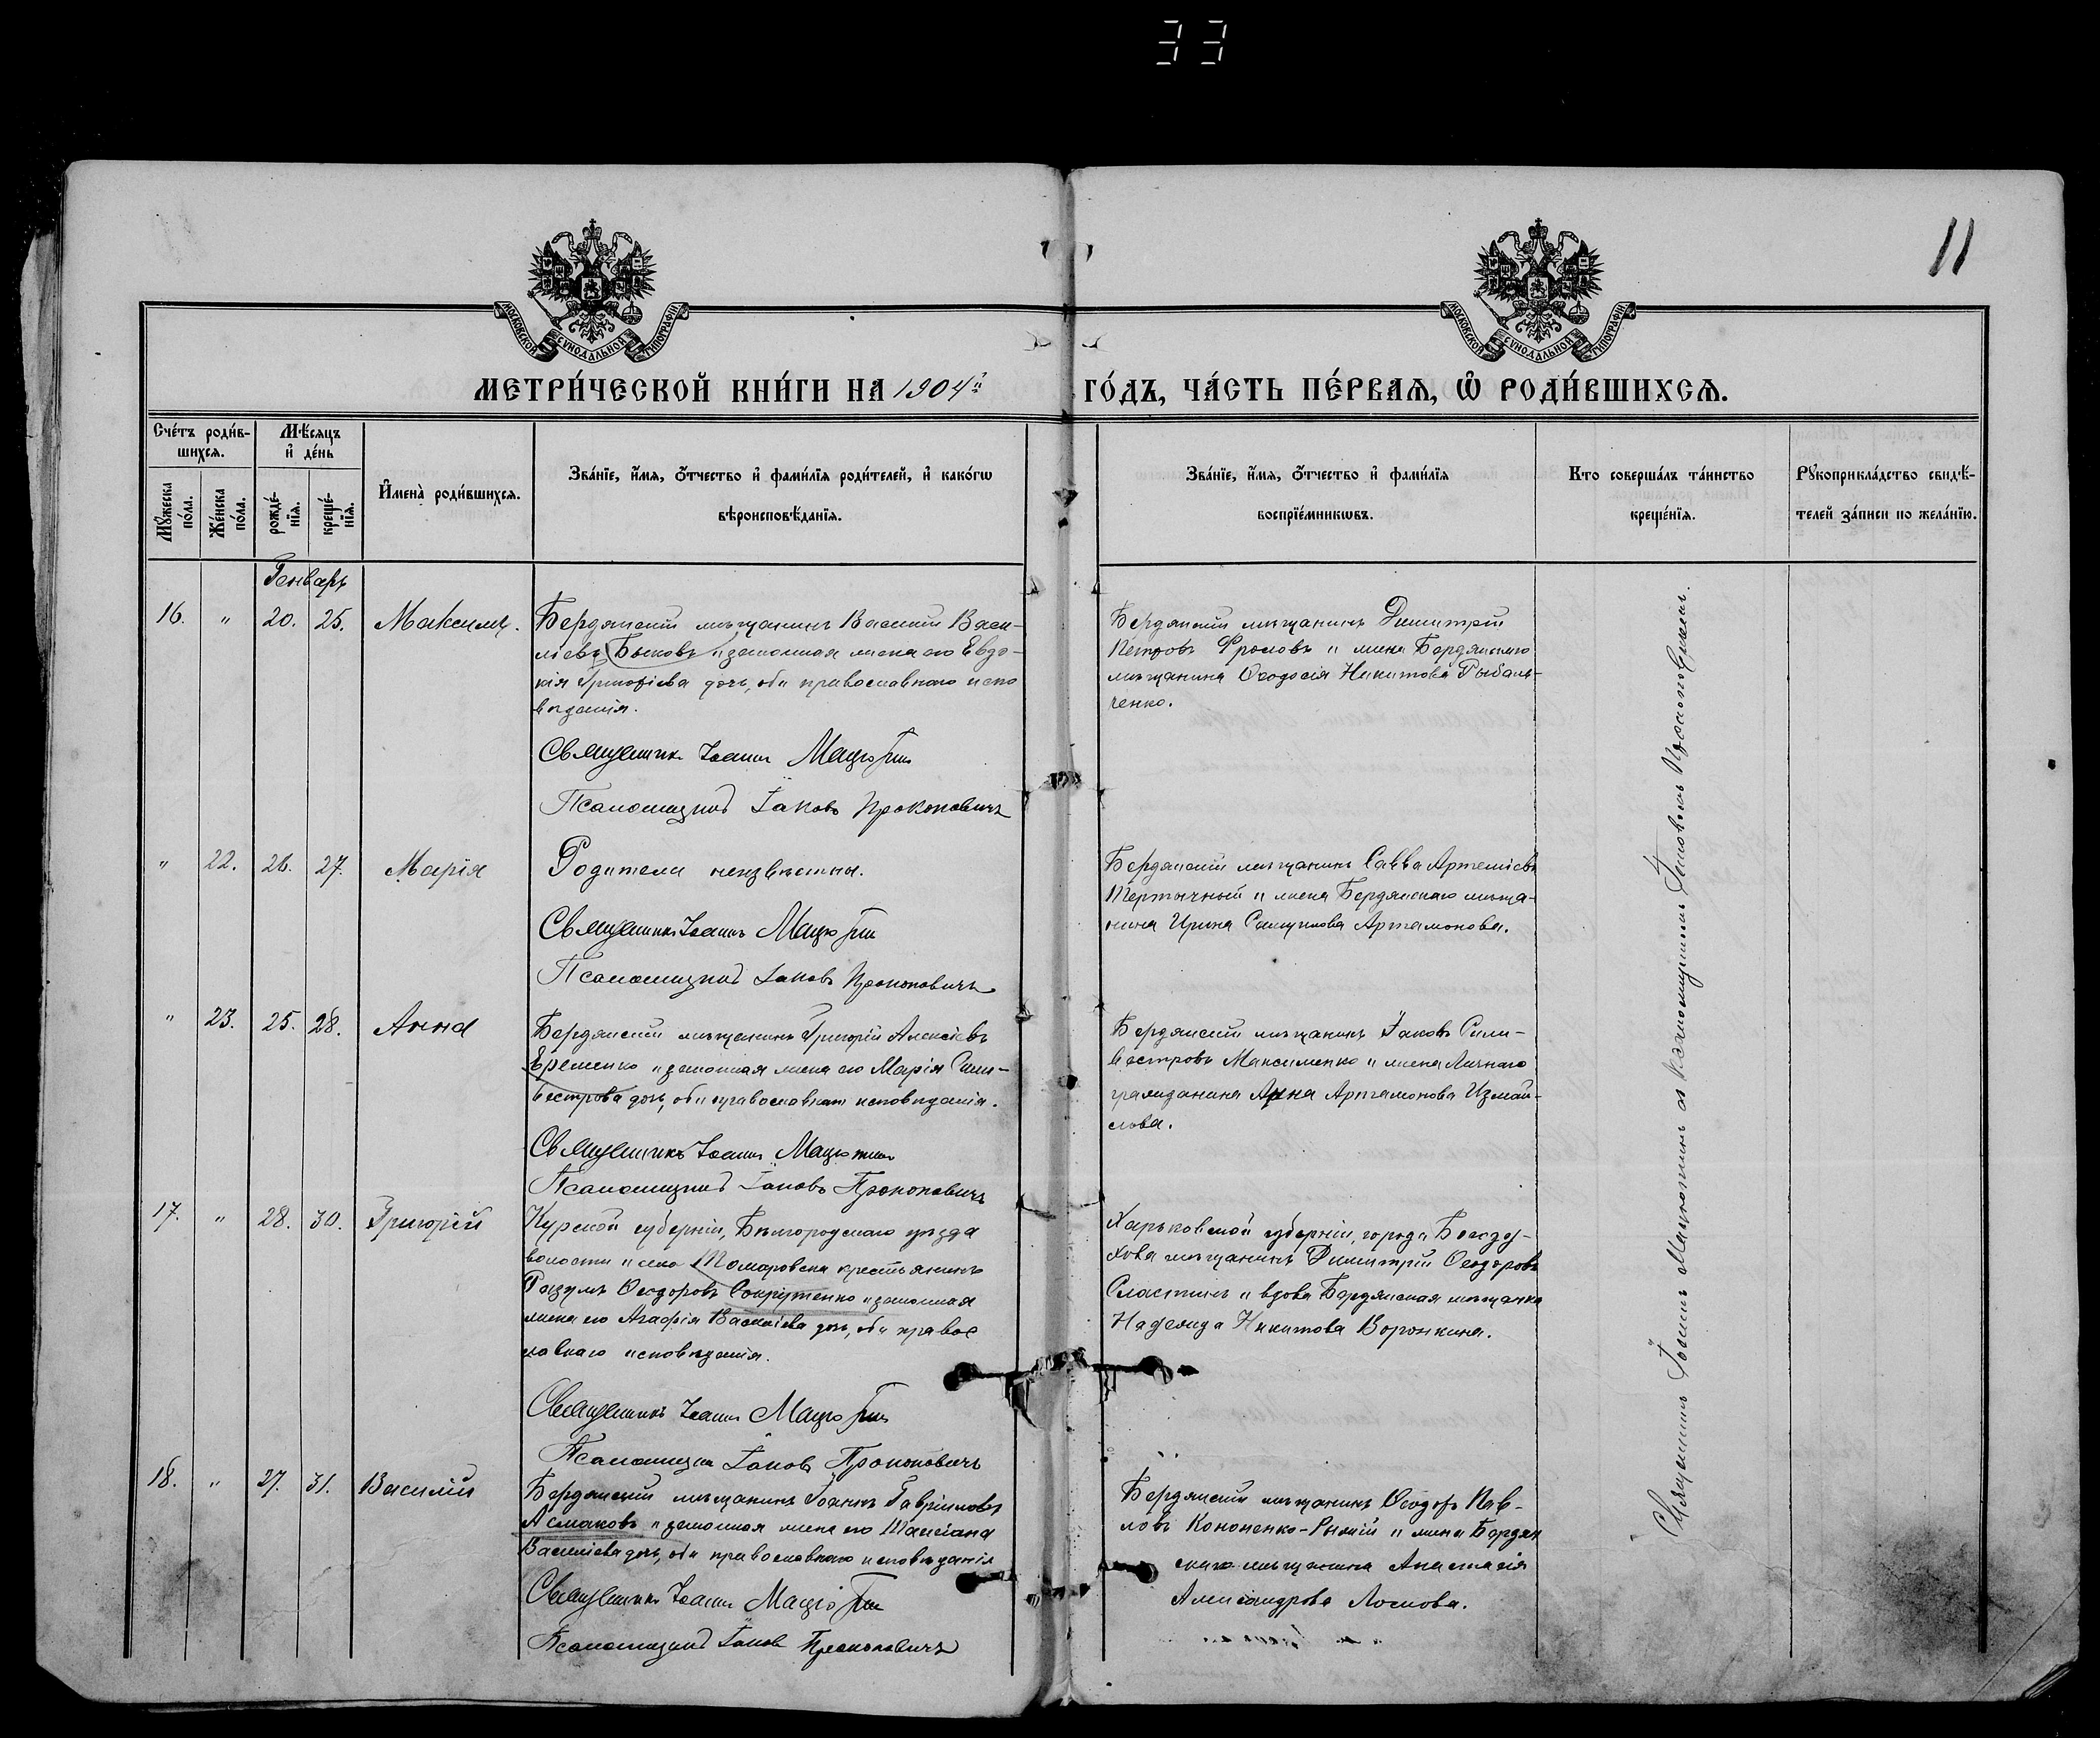 33
11
МОСКОВСКОЙ СѴНОДАЛЬНОЙ ТИПОГРАФІИ
МОСКОВСКОЙ СѴНОДАЛЬНОЙ ТИПОГРАФІИ
МЕТРИ́ЧЕСКОЙ КНИ́ГИ НА 1904й ГО́ДЪ, ЧА́СТЬ ПЕ́РВАѦ, Ѡ҆ РОДИ́ВШИХСѦ.
Сче́тъ роди́в-
шихсѧ.
Мꙋ́жеска
по́ла.
Же́нска
по́ла.
Мѣ́сѧцъ
и҆ де́нь
рожде́-
нїѧ.
креще́-
нїѧ.
И҆мена̀ роди́вшихсѧ.
Зва́нїе, и҆́мѧ, ѻ҆́тчество и҆ фами́лїѧ роди́телей, и҆ како́гѡ
вѣроисповѣ́данїѧ.
Зва́нїе, и҆́мѧ, ѻ҆́тчество и҆ фами́лїѧ
воспрїе́мникѡвъ.
Кто соверша́лъ та́инство
креще́нїѧ.
Рꙋкоприкла́дство свидѣ́-
телей за́писи по жела́нїю.
Генварь
16. " 20. 25. Максимъ.
Бердянскій мѣщанинъ Василій Васи-
ліевъ Быковъ и законная жена его Евдо-
кія Григоріева дочь, оба православнаго испо
вѣданія.
Священникъ Іоаннъ Мацютинъ
Псаломщикъ Іаковъ Прокоповичъ
Бердянскій мѣщанинъ Димитрій
Петровъ Фроловъ и жена Бердянскаго
мѣщанина Ѳеодосія Никитова Рыбаль-
ченко.
" 22. 26. 27. Марія
Родители неизвѣстны.
Священникъ Іоаннъ Мацютинъ
Псаломщикъ Іаковъ Прокоповичъ
Бердянскій мѣщанинъ Савва Артеміевъ
Тертычный и жена Бердянскаго мѣща-
нина Ирина Артамонова.
" 23. 25. 28. Анна
Бердянскій мѣщанинъ Григорій Алексіевъ
Еременко и законная жена его Марія Сили-
вестрова дочь, оба православнаго исповѣданія.
Священникъ Іоаннъ Мацютинъ
Псаломщикъ Іаковъ Прокоповичъ
Бердянскій мѣщанинъ Іаковъ Сили-
вестровъ Максименко и жена Личнаго
гражданина Анна Артамонова Измай-
лова.
17. " 28. 30. Григорій
Курской губерніи, Бѣлгородскаго уѣзда
волости и села Томаровки крестьянинъ
Ѳеодоровъ Сокрутенко и законная
жена его Агафія Василіева дочь, оба правос
лавнаго исповѣданія.
Священникъ Іоаннъ Мацютинъ
Псаломщикъ Іаковъ Прокоповичъ
Харьковской губерніи, города Богоду-
хова мѣщанинъ Димитрій Ѳеодоровъ
Сластинъ и вдова Бердянская мѣщанка
Надежда Никитова Воронкина.
18. " 27. 31. Василій
Бердянскій мѣщанинъ Іоаннъ Гавріиловъ
Асмаковъ и законная жена его Татіана
Василіева дочь, оба православнаго исповѣданія
Священникъ Іоаннъ Мацютинъ
Псаломщикъ Іаковъ Прокоповичъ
Бердянскій мѣщанинъ Ѳеодоръ Пав-
ловъ Кононенко-Рыжій и жена Бердян
скаго мѣщанина Анастасія
Александрова Носкова.
Священникъ Іоаннъ Мацютинъ съ псаломщикомъ Іаковомъ Прокоповичемъ.